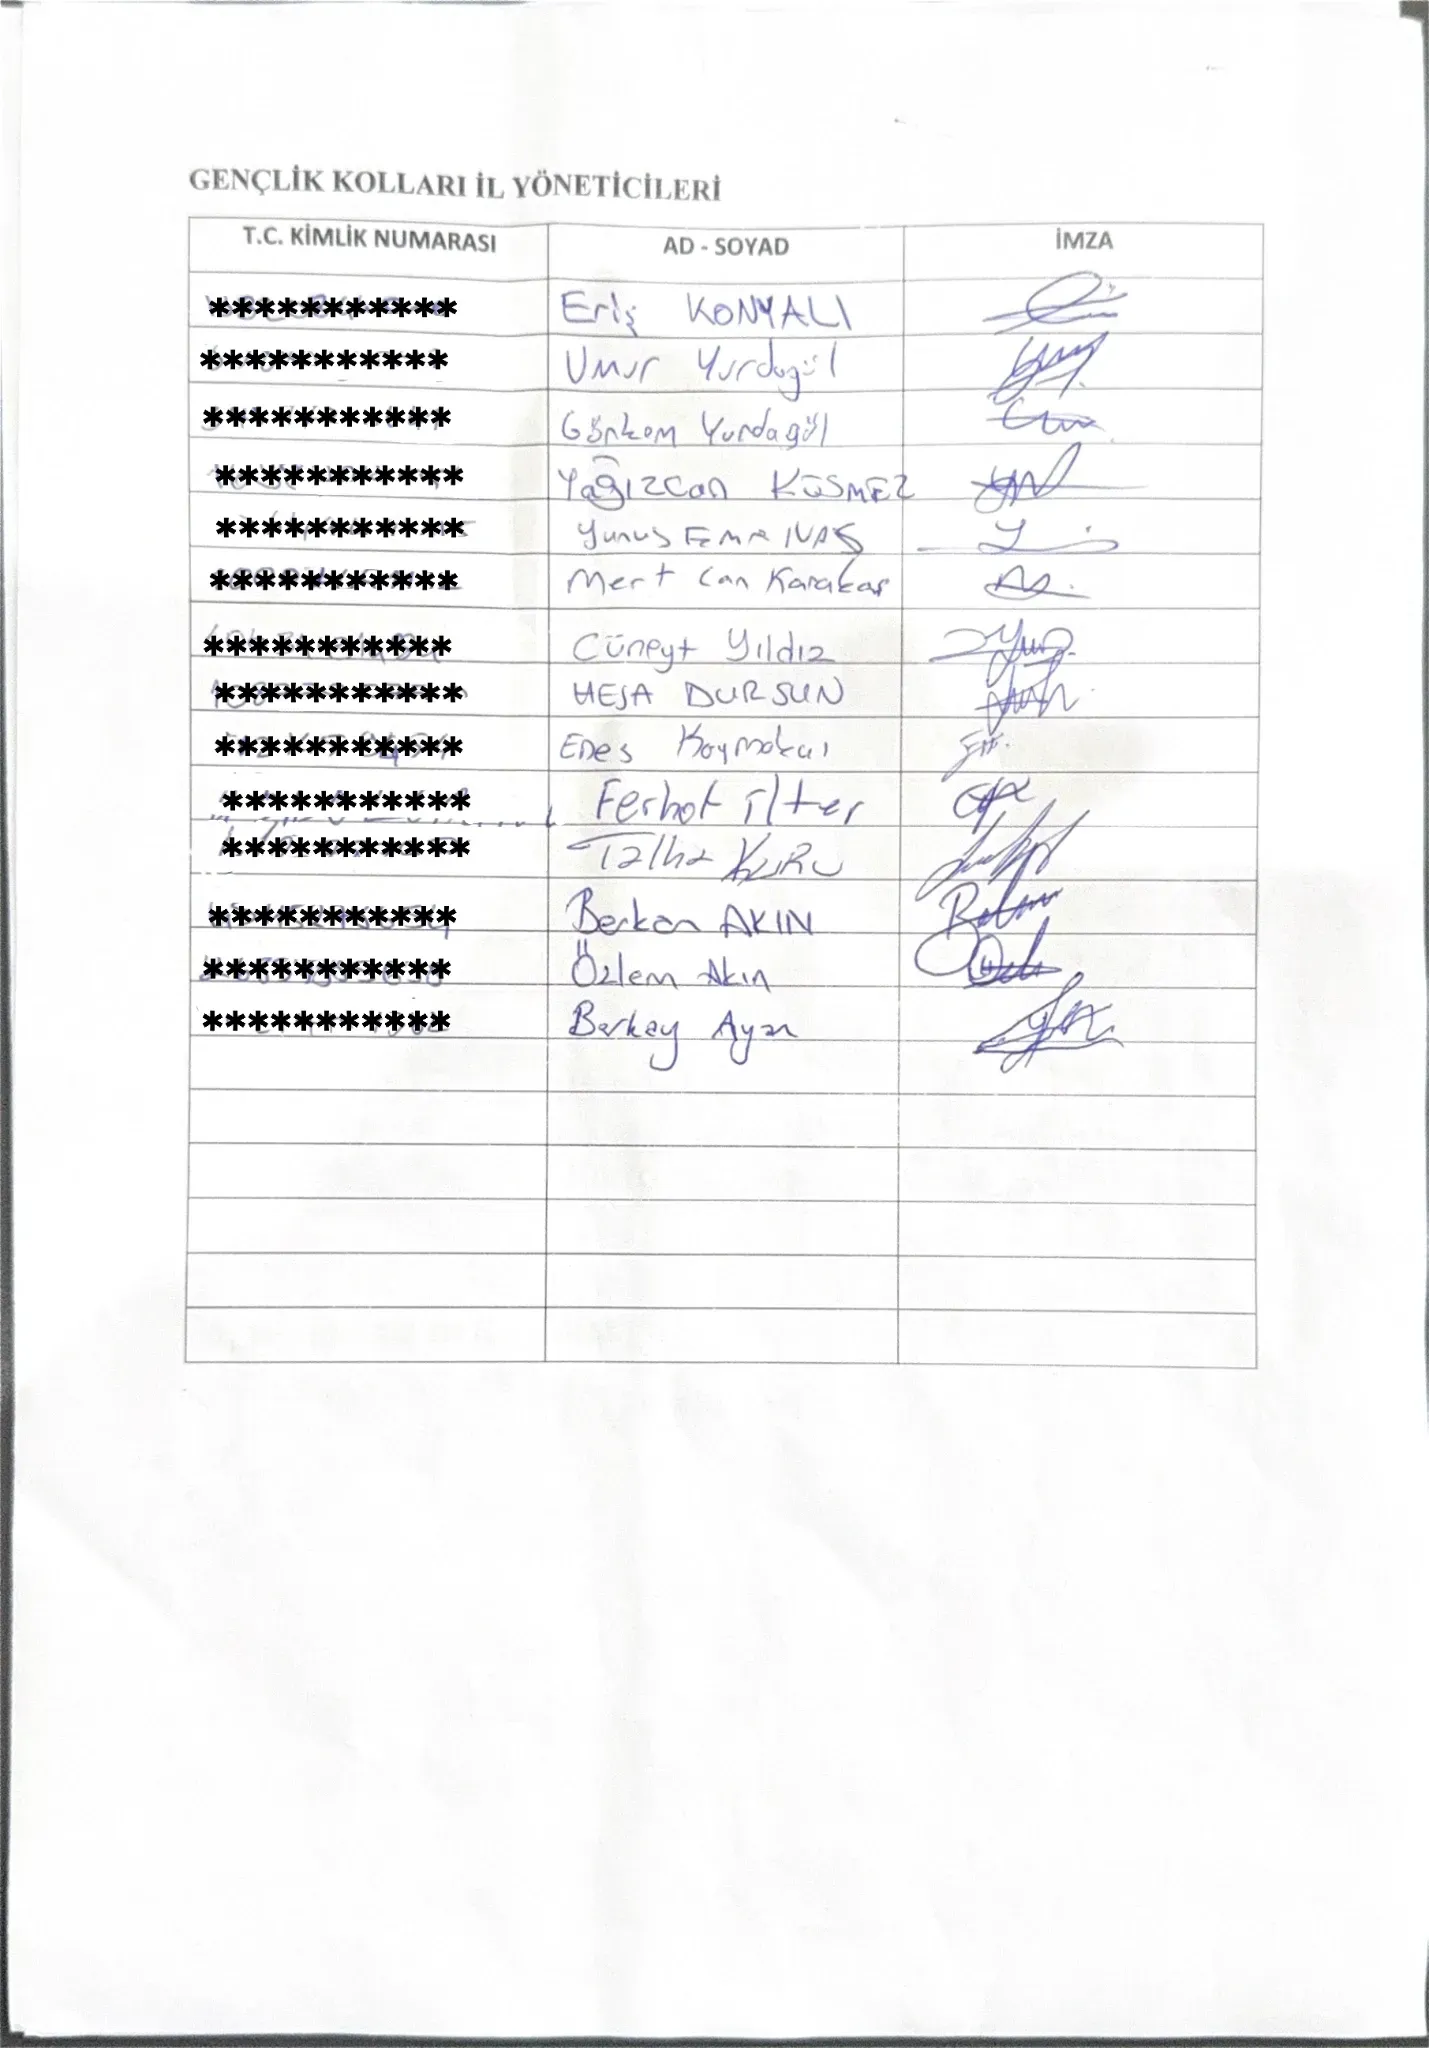 GENÇLİK KOLLARI İL YÖNETİCİLERİ
T.C. KİMLİK NUMARASI AD - SOYAD İMZA
*********** Eriş KONYALI
*********** Umur Yurdagül
*********** Görkem Yurdagül
*********** Yağızcan KÜSMEZ
*********** Yunus Emre IVAŞ
*********** Mert Can Karakaş
*********** Cüneyt Yıldız
*********** HEJA DURSUN
*********** Enes
*********** Ferhat İlter
*********** Talha KURU
*********** Berkan AKIN
*********** Özlem Akın
*********** Berkay Ayan